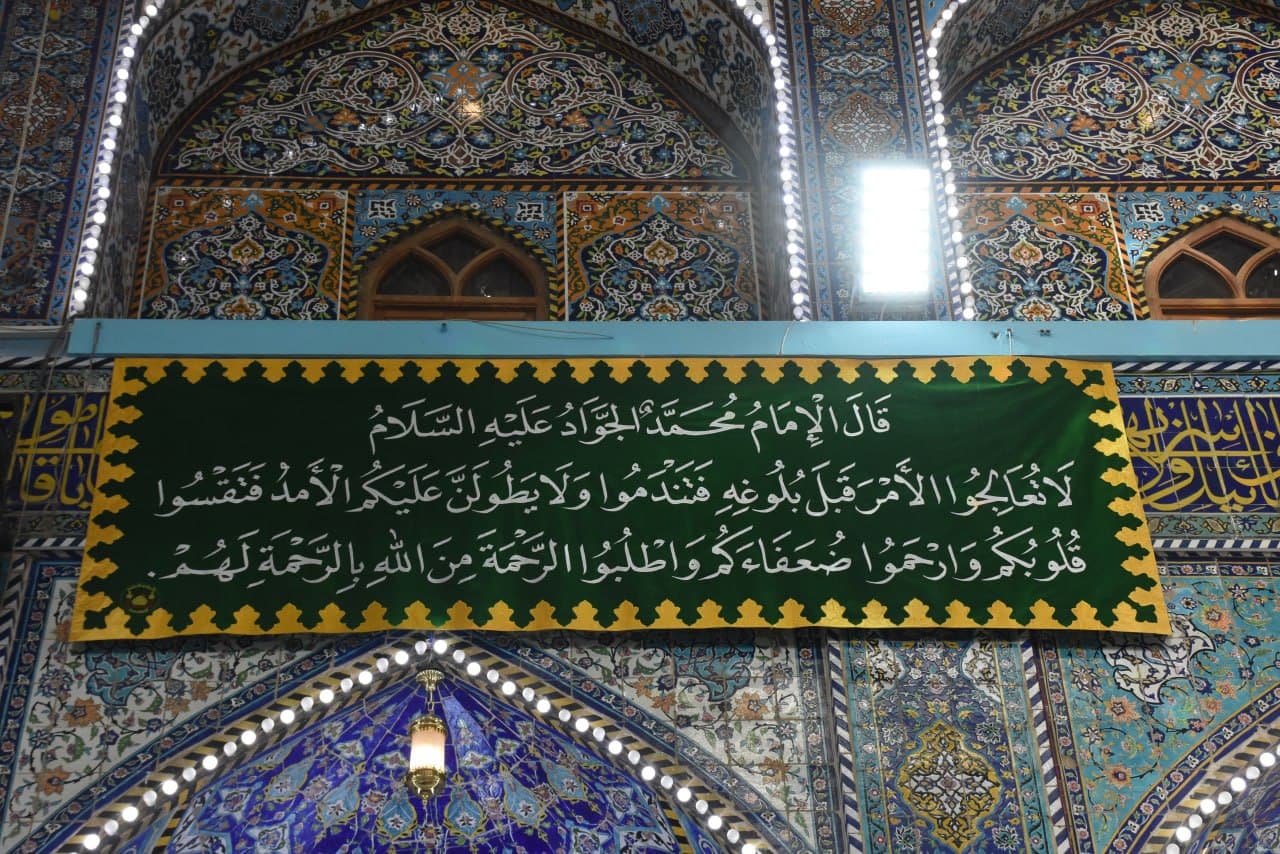 قَالَ الْإِمَامُ مُحَمَّدٌ الجَوَّادُ عَلَيْهِ السَّلَامُ
لَا تُعَالِجُوا الأَمْرَ قَبْلَ بُلُوغِهِ فَتَنْدَمُوا وَلَا يَطُولَنَّ عَلَيْكُم الْأَمدُ فَتَقْسُوا
قُلُوبُكُم وَارْحَمُوا ضُعَفَاءَكُم وَاطْلُبُوا الرَّحْمَةَ مِنَ اللهِ بِالرَّحْمَةِ لَهُمْ.